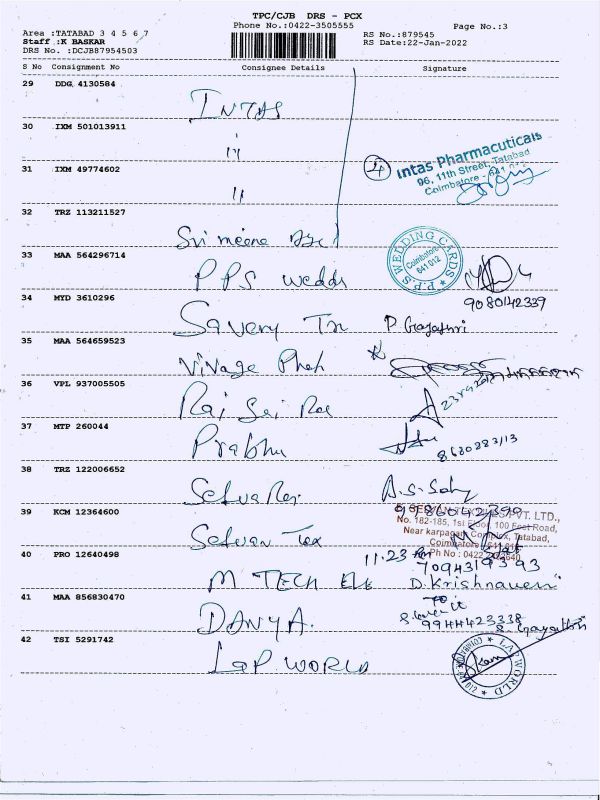 TPC/CJB DRS - PCX
Phone No.:0422-3505555
Page No.:3
Area :TATABAD 3 4 5 6 7
Staff :K BASKAR
DRS No. :DCJB87954503
RS No.:879545
RS Date:22-Jan-2022
S No Consignment No Consignee Details Signature
29 DDG 4130584
INTAS
30 IXM 501013911
11
31 IXM 49774602
11
4 Intas Pharmacuticals
96, 11th Street, Tatabad
Coimbatore - 641 012
32 TRZ 113211527
Sri meena
33 MAA 564296714
PPS wedds
P.P.S WEDDING CARDS
Coimbatore
641 012
34 MYD 3610296
9080142339
Savery Tr P Gayathri
35 MAA 564659523
Vivage
36 VPL 937005505
Rai Sai
37 MTP 260044
Prabhu
8680283113
38 TRZ 122006652
Selva A.S.
39 KCM 12364600
PVT. LTD.,
No. 182-185, 1st Floor, 100 Feet Road,
Near karpagam Complex, Tatabad,
Coimbatore
Ph No : 0422
Selvan Tex
40 PRO 12640498
11.23
7094319393
M TECH Ele D.Krishnaveni
41 MAA 856830470
9944423338
DANYA. Gayathri
42 TSI 5291742
LaP WORLD
LAP WORLD